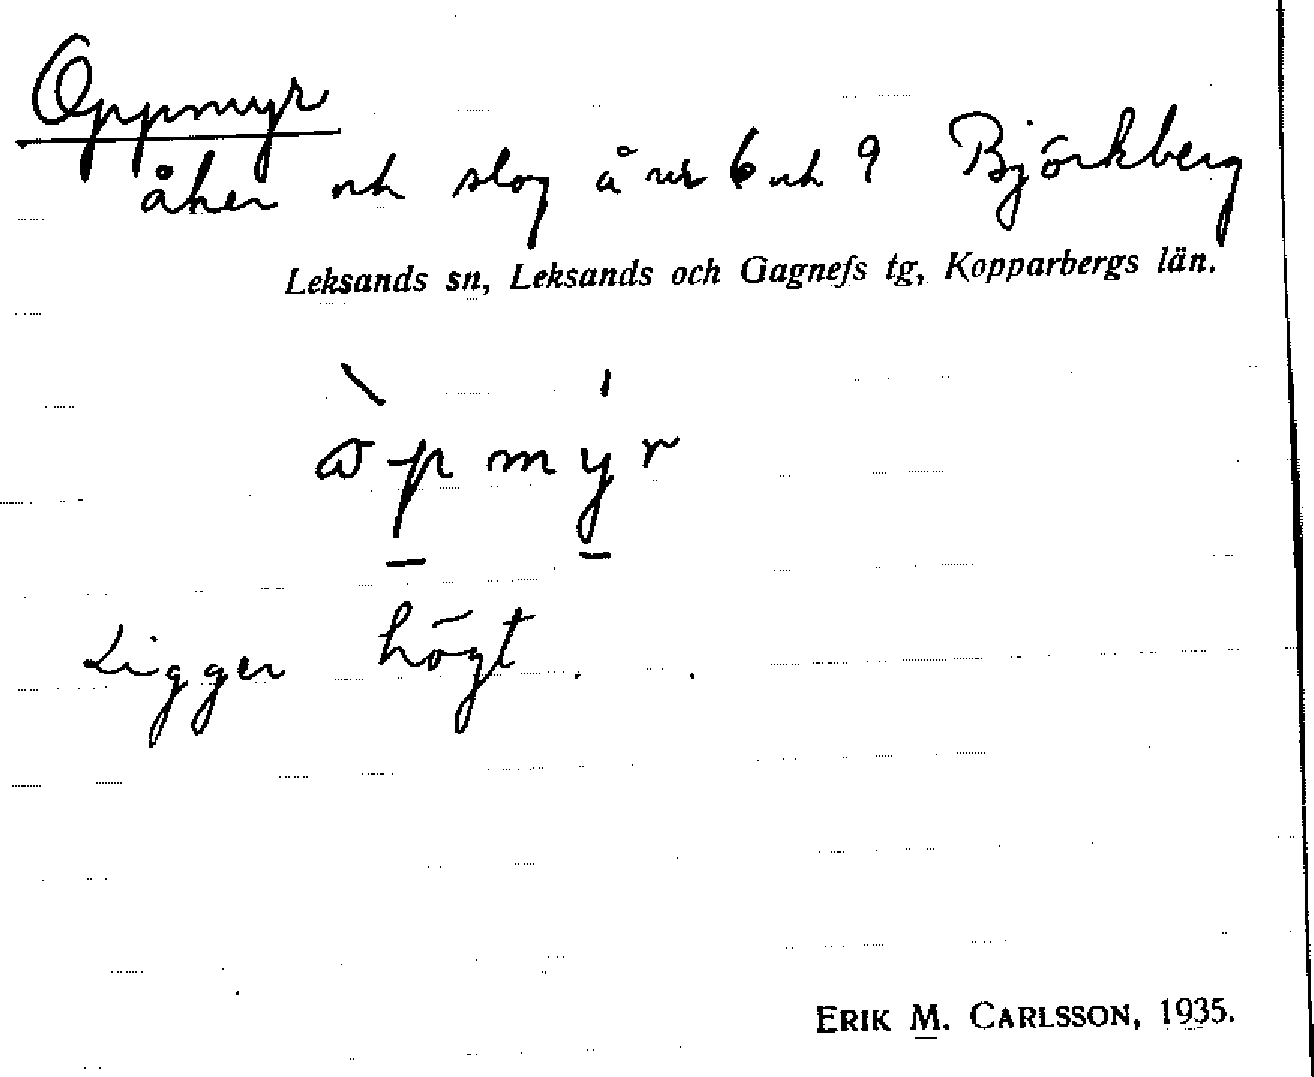 Oppmyr
åker och slog å nr 6 och 9 Björkberg
Leksands sn, Leksands och Gagnefs tg, Kopparbergs län.
Ligger högt.
ERIK M. CARLSSON, 1935.